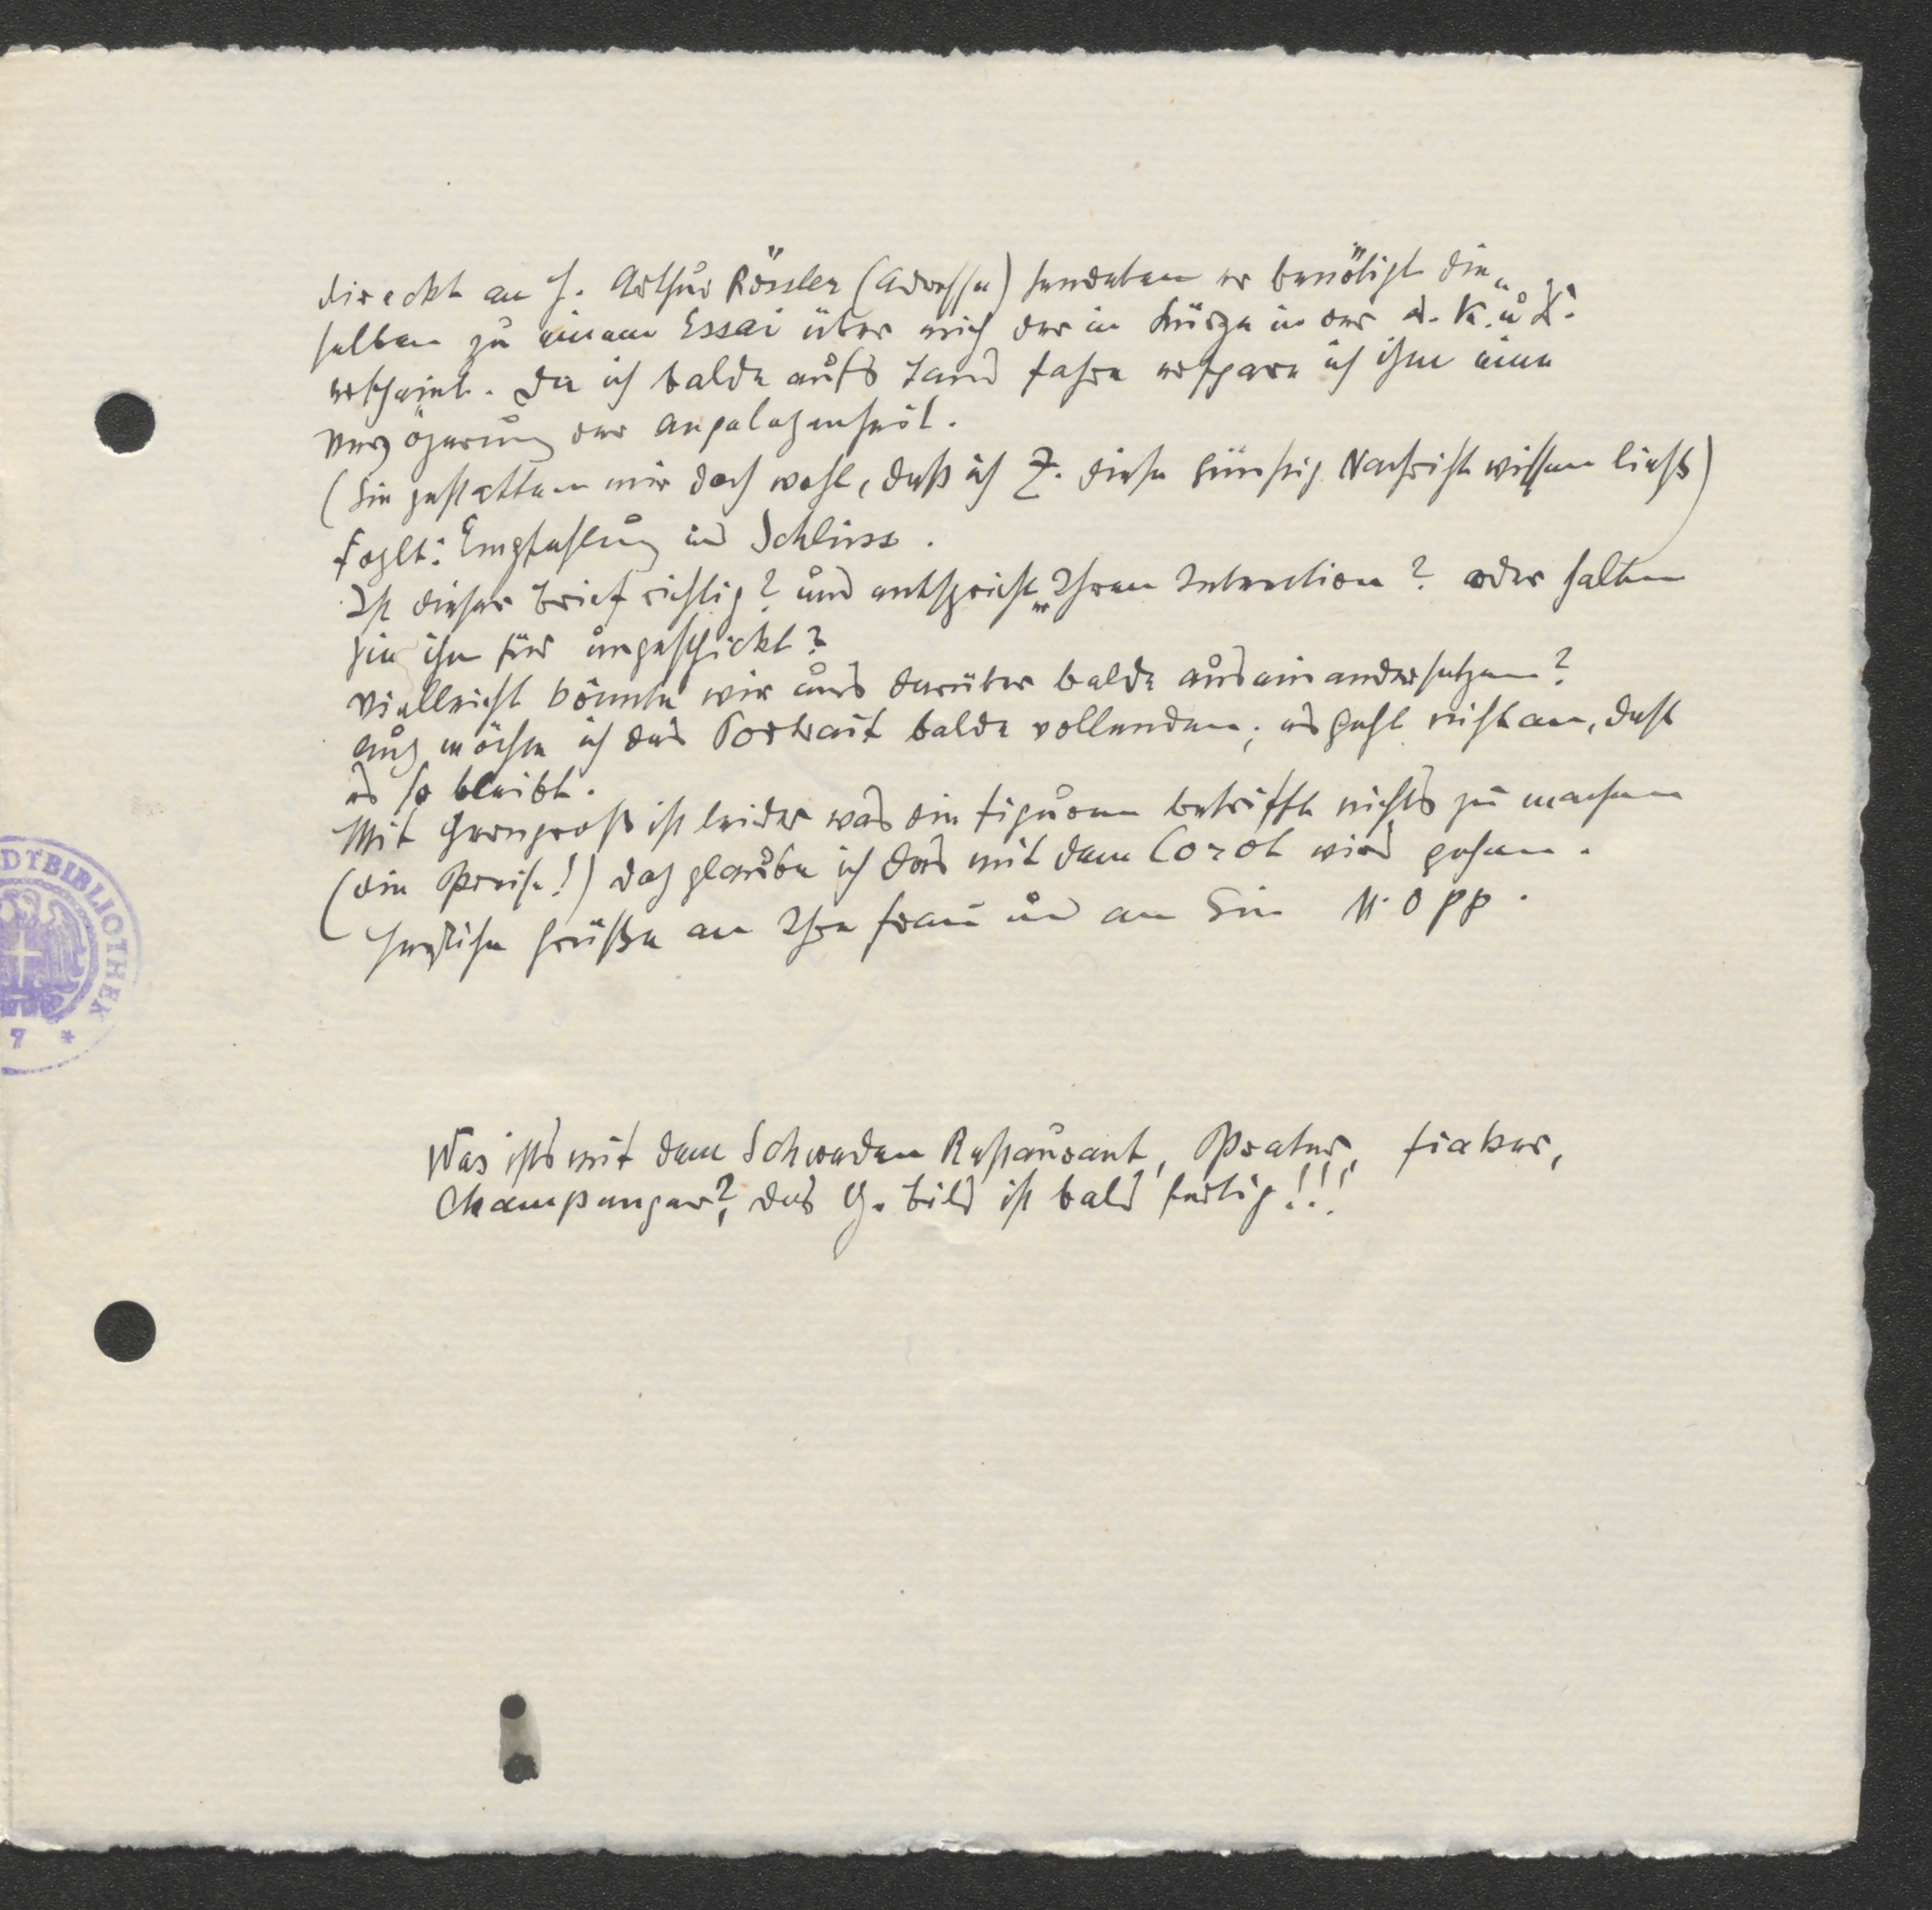 direckt an H. Arthur Rössler (Adresse) sendeten er benötigt die„
selben zu einem Essai über mich der in Kürze in der d. K. u. D.
erscheint. Da ich balde aufs Land fahre erspare ich ihm eine
Verzögerung der Angelegenheit.
(Sie gestatten mir doch wohl, daß ich Z. diese günstig Nachricht wissen ließ)
Foglt: Empfehlung und Schluss.
Ist dieser Brief richtig? und entspricht er Ihren Intenction? oder halten
Sie ihn für ungeschickt?
Vielleicht könnte wir uns darüber balde auseinandersetzen?
Auch möchte ich das Portrait balde vollenden; es geht nicht an, daß
es so bleibt.
Mit Gerngross ist leider was die Figuren betrifft nichts zu machen
(die Preise!) doch glaube ich das mit dem Corot wird gehen.
Herzliche Grüße an Ihre Frau und an Sie M. Opp.
Was ists mit dem Schweden Restaurant, Prater, Fiaker,
Champanger? das G. Bild ist bald fertig!!!
DTBIBLIOTHEK
7 *